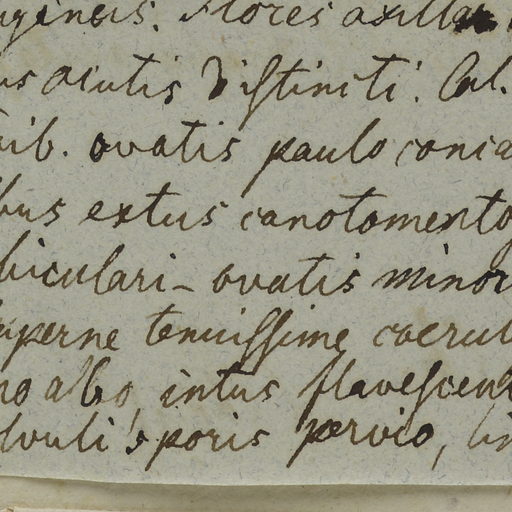 ugineis. Flores axillar
us acutis distincti. Cal.
rib. ovatis paulo conca
bus extus canotomentos
biculari-ovatis minor
uperne tenuissime coerul
no albo, intus flavescent
lvulis poris pervio, lin